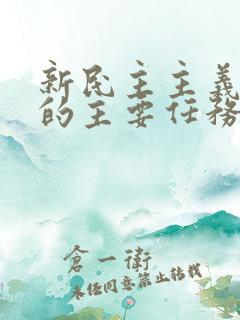 新民主主義
的主要任務
倉一衛
未任同意禁止转载